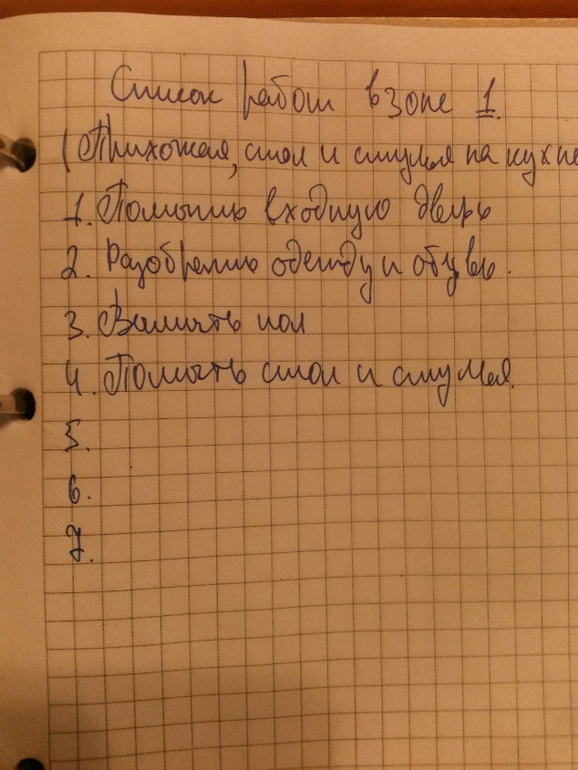 Список работ в зоне 1.
(Прихожая, стол и стулья на кухне
1. Помыть входную дверь
2. Разобрать одежду и обувь.
3. Вымыть пол
4. Помыть стол и стулья.
5.
6.
7.